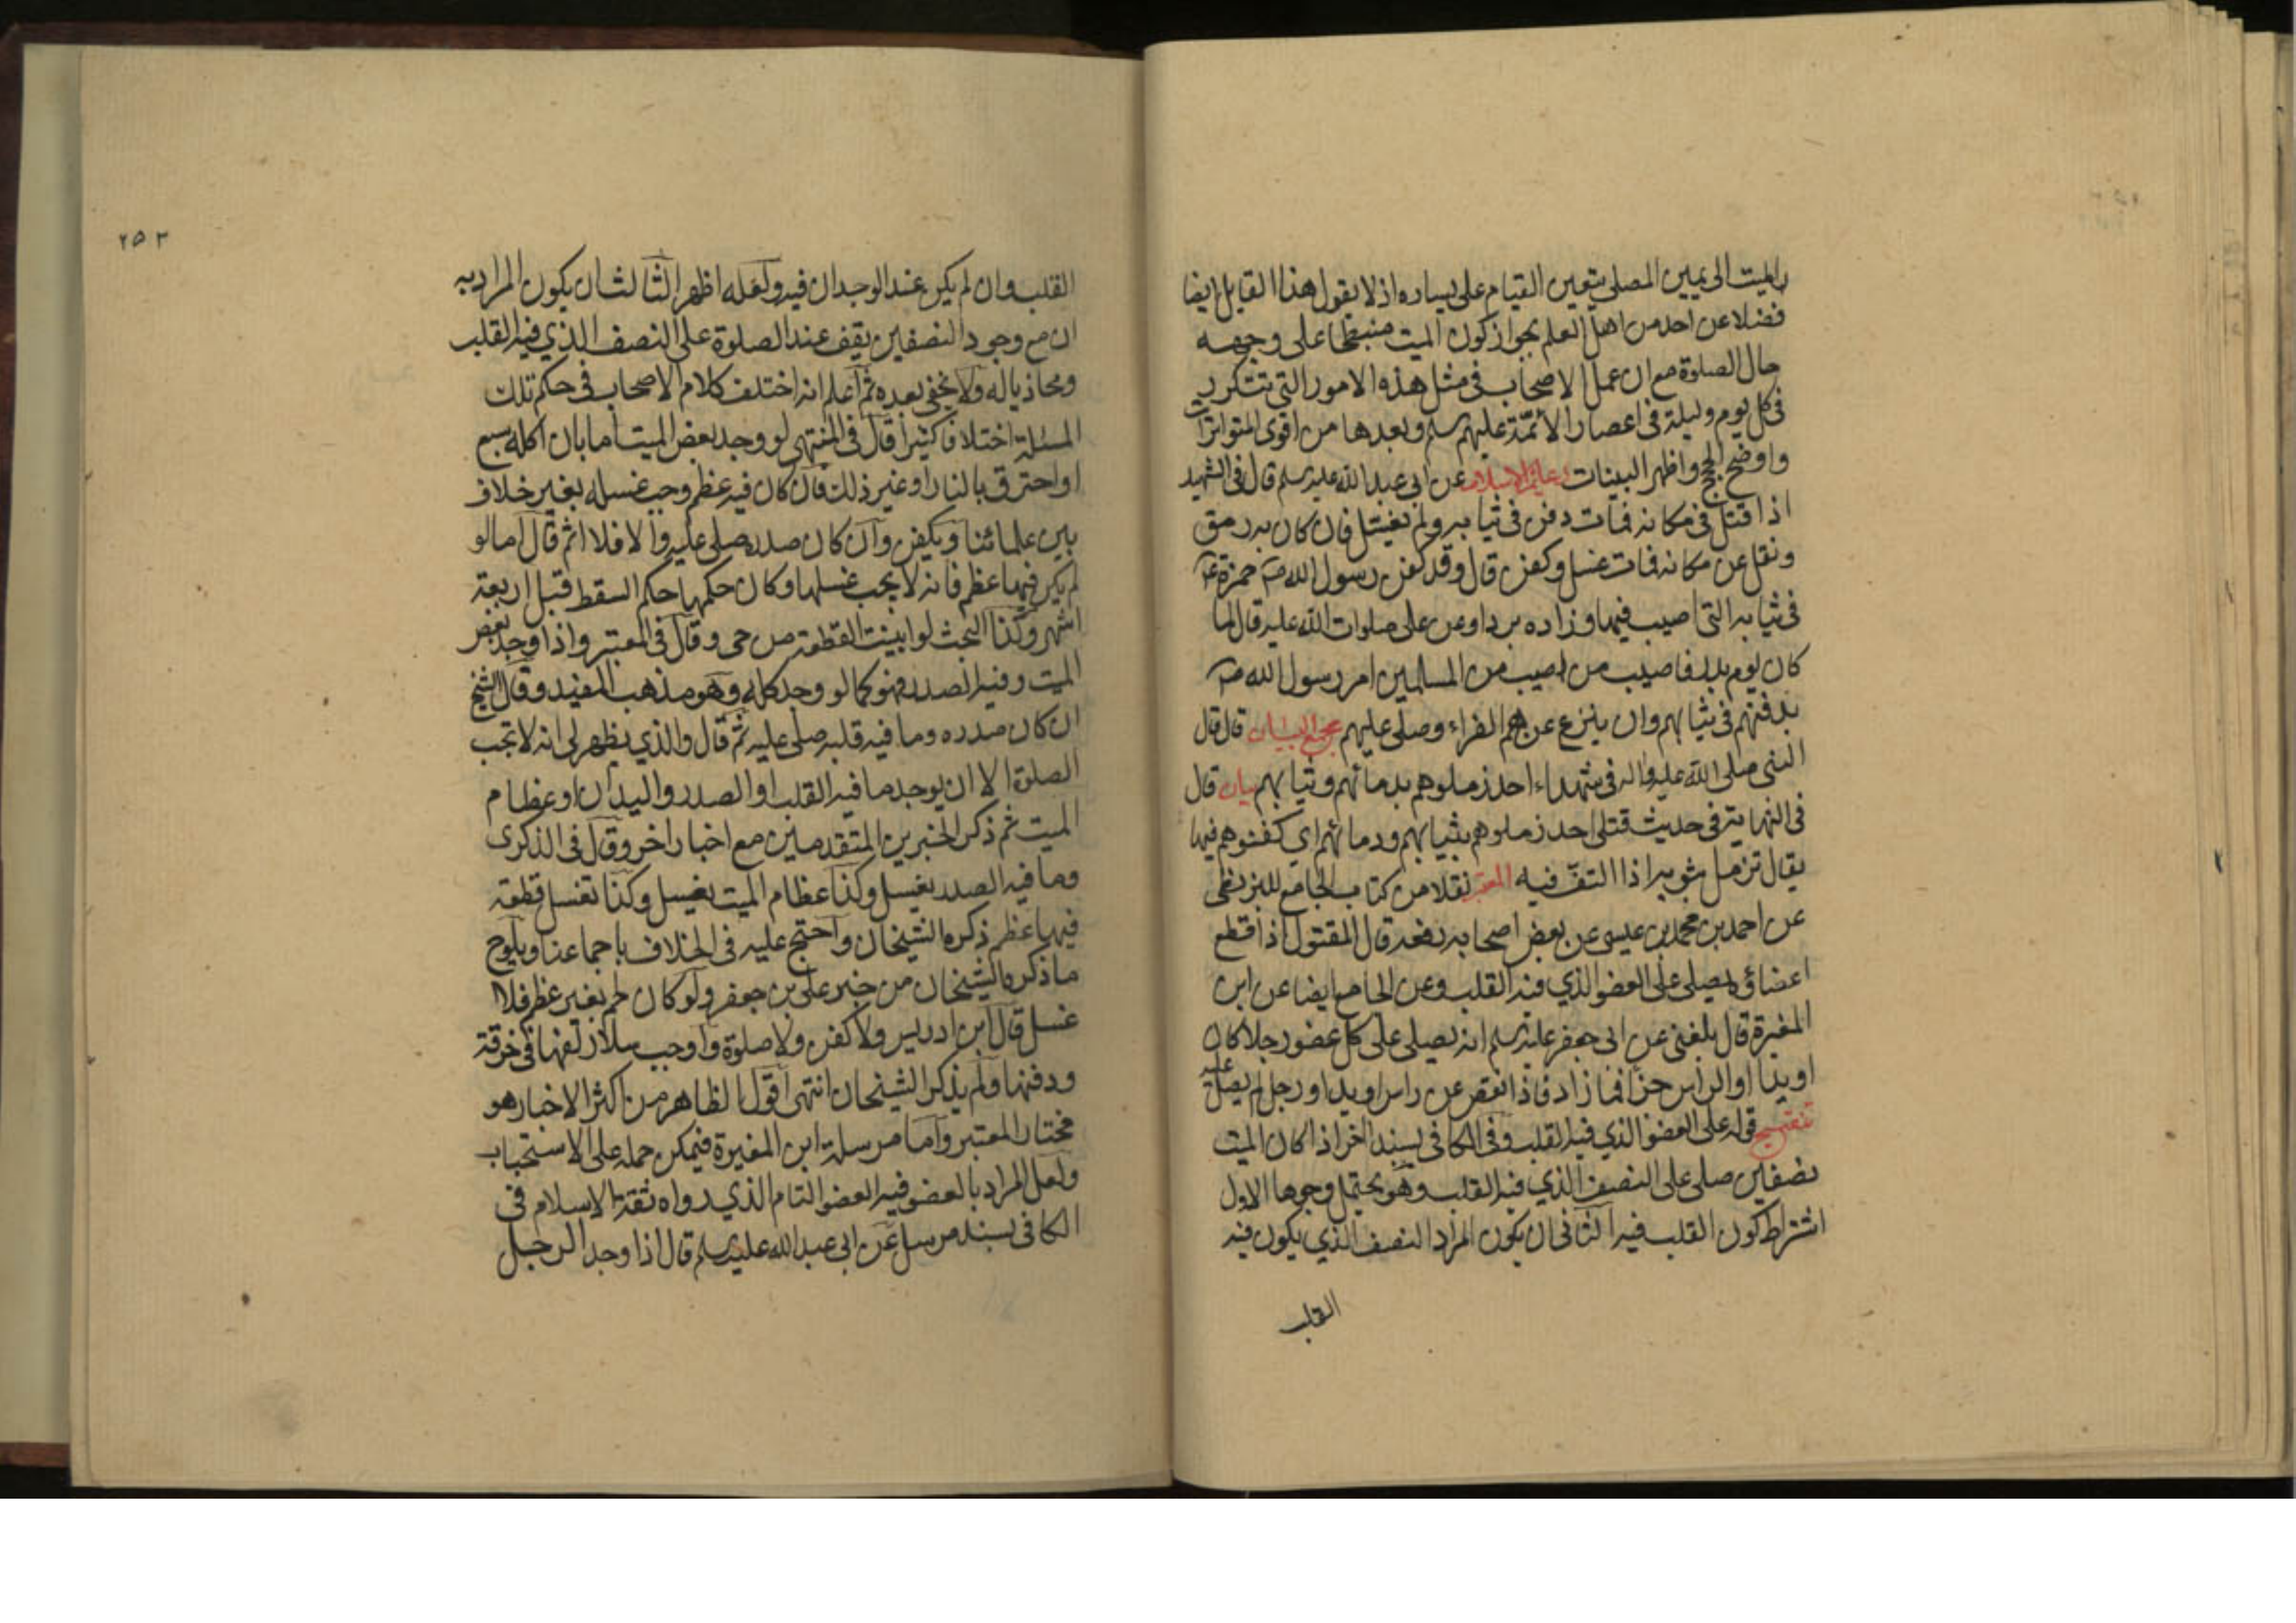 بالميت الى يمين المصلي يتعين القيام على يساره اذ لا يقول هذا القايل ايضا
فضلا عن احد من اهل العلم بجواز كون الميت منبطحا على وجهه
حال الصلوة مع ان عمل الاصحاب في مثل هذه الامور التي تتكرر
في كل يوم وليلة في اعصار الائمة عليهم سلم وبعدها من اقوى المتواترات
واوضح الحجج واظهر البينات دعائم الاسلام عن ابي عبد الله عليه سلم قال في الشهيد
اذا قتل في مكانه فمات دفن في ثيابه ولم يغسل فان كان به رمق
ونقل عن مكانه فمات غسل وكفن قال وقد كفن رسول الله ص حمزة ع
في ثيابه التي اصيب فيها وزاده بردا وعن علي صلوات الله عليه قال لما
كان يوم بدر فاصيب من اصيب من المسلمين امر رسول الله ص
بدفنهم في ثيابهم وان ينزع عنهم الفراء وصلى عليهم مجمع البيان قال قال
النبي صلى الله عليه واله في شهداء احد زملوهم بدمائهم وثيابهم بيان قال
في النهاية في حديث قتلى احد زملوهم بثيابهم ودمائهم اي كفنوهم فيها
يقال تزمل بثوبه اذا التف فيه المعتبر نقلا من كتاب الجامع للبزنطي
عن احمد بن محمد بن عيسى عن بعض اصحابه رفعه قال المقتول اذا قطع
اعضاؤه يصلى على العضو الذي فيه القلب وعن الجامع ايضا عن ابن
المغيرة قال بلغني عن ابي جعفر عليه سلم انه يصلى على كل عضو رجلا كان
او يدا او الراس جزا فما زاد فاذا نقص عن راس او يد او رجل لم يصل عليه
تنقيح قوله على العضو الذي فيه القلب وفي الكافي بسند اخر اذا كان الميت
نصفين صلى على النصف الذي فيه القلب وهو يحتمل وجوها الاول
اشتراط كون القلب فيه الثاني ان يكون المراد النصف الذي يكون فيه
القلب
٢٥٣
القلب وان لم يكن عند الوجدان فيه ولعله اظهر الثالث ان يكون المراد به
ان مع وجود النصفين يقف عند الصلوة على النصف الذي فيه القلب
ومحاذيا له ولا يخفى بعده ثم اعلم انه اختلف كلام الاصحاب في حكم تلك
المسئلة اختلافا كثيرا قال في المنتهى لو وجد بعض الميت اما بان اكله سبع
او احترق بالنار او غير ذلك فان كان فيه عظم وجب غسله بغير خلاف
بين علمائنا ويكفن وان كان صدره صلى عليه والا فلا ثم قال اما لو
لم يكن فيها عظم فانه لا يجب غسلها وكان حكمها حكم السقط قبل اربعة
اشهر وكذا البحث لو ابينت القطعة من حي وقال في المعتبر واذا وجد بعض
الميت وفيه الصدر فهو كما لو وجد كله وهو مذهب المفيد وقال الشيخ
ان كان صدره وما فيه قلبه صلى عليه ثم قال والذي يظهر لي انه لا تجب
الصلوة الا ان يوجد ما فيه القلب او الصدر واليدان او عظام
الميت ثم ذكر الخبرين المتقدمين مع اخبار اخر وقال في الذكرى
وما فيه الصدر يغسل وكذا عظام الميت يغسل وكذا تغسل قطعة
فيها عظم ذكره الشيخان واحتج عليه في الخلاف باجماعنا ويلوح
ما ذكره الشيخان من خبر علي بن جعفر ولو كان لحم بغير عظم فلا
غسل قال ابن ادريس ولا كفن ولا صلوة واوجب سلار لفها في خرقة
ودفنها ولم يذكر الشيخان انتهى اقول الظاهر من اكثر الاخبار هو
مختار المعتبر واما مرسلة ابن المغيرة فيمكن حمله على الاستحباب
ولعل المراد بالعضو فيه العضو التام الذي رواه ثقة الاسلام في
الكافي بسند مرسل عن ابي عبد الله عليه سلم قال اذا وجد الرجل